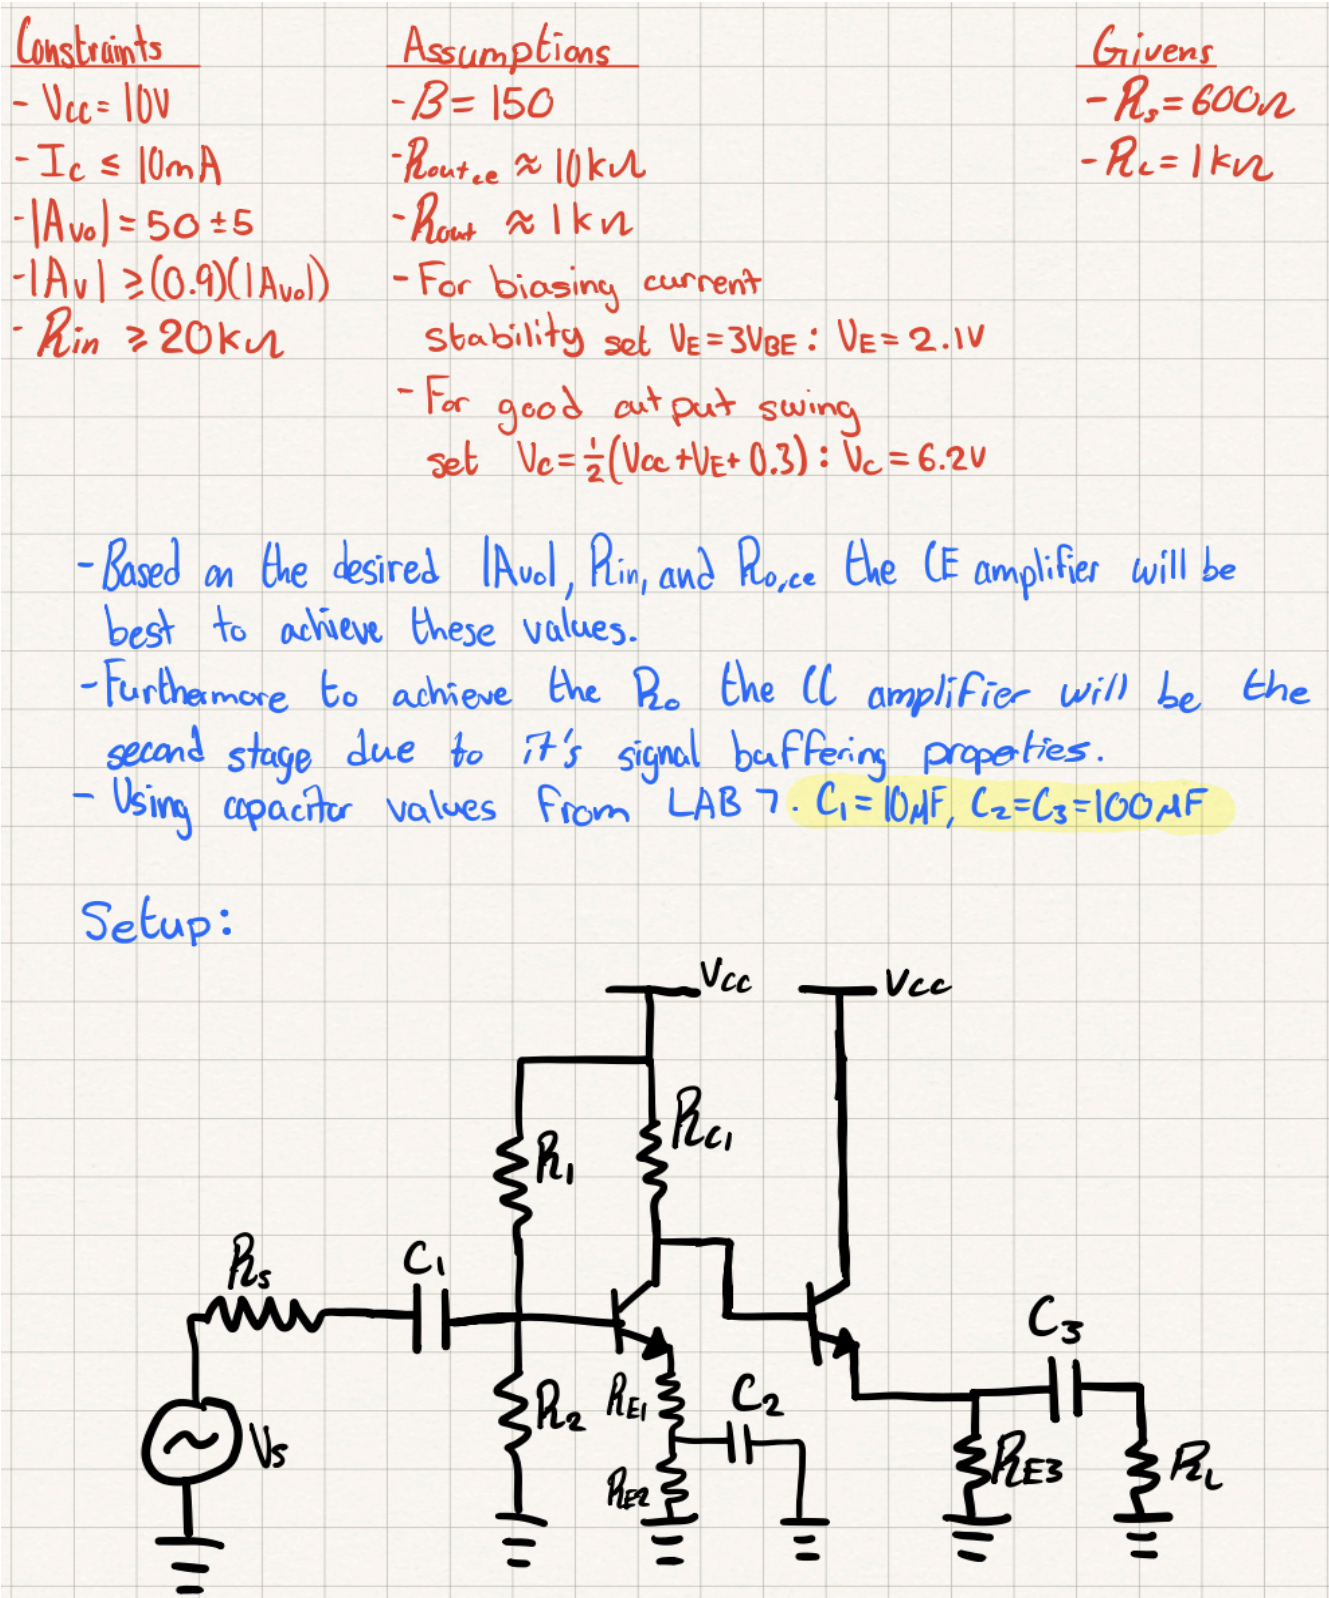 Constraints
- Vcc = 10V
- Ic ≤ 10mA
- |Avo| = 50 ± 5
- |Av| ≥ (0.9)(|Avo|)
- Rin ≥ 20kΩ
Assumptions
- B = 150
- Rout,ce ≈ 10kΩ
- Rout ≈ 1kΩ
- For biasing current
stability set VE = 3VBE : VE = 2.1V
- For good output swing
set Vc = 1/2 (Vcc + VE + 0.3) : Vc = 6.2V
Givens
- Rs = 600Ω
- RL = 1kΩ
- Based on the desired |Avo|, Rin, and Ro,ce the CE amplifier will be
best to achieve these values.
- Furthermore to achieve the Ro the CC amplifier will be the
second stage due to it's signal buffering properties.
- Using capacitor values from LAB 7. C1 = 10μF, C2 = C3 = 100μF
Setup:
Vcc
Vcc
R1
RC1
Rs
C1
C3
Vs
R2
RE1
C2
RE2
RE3
RL